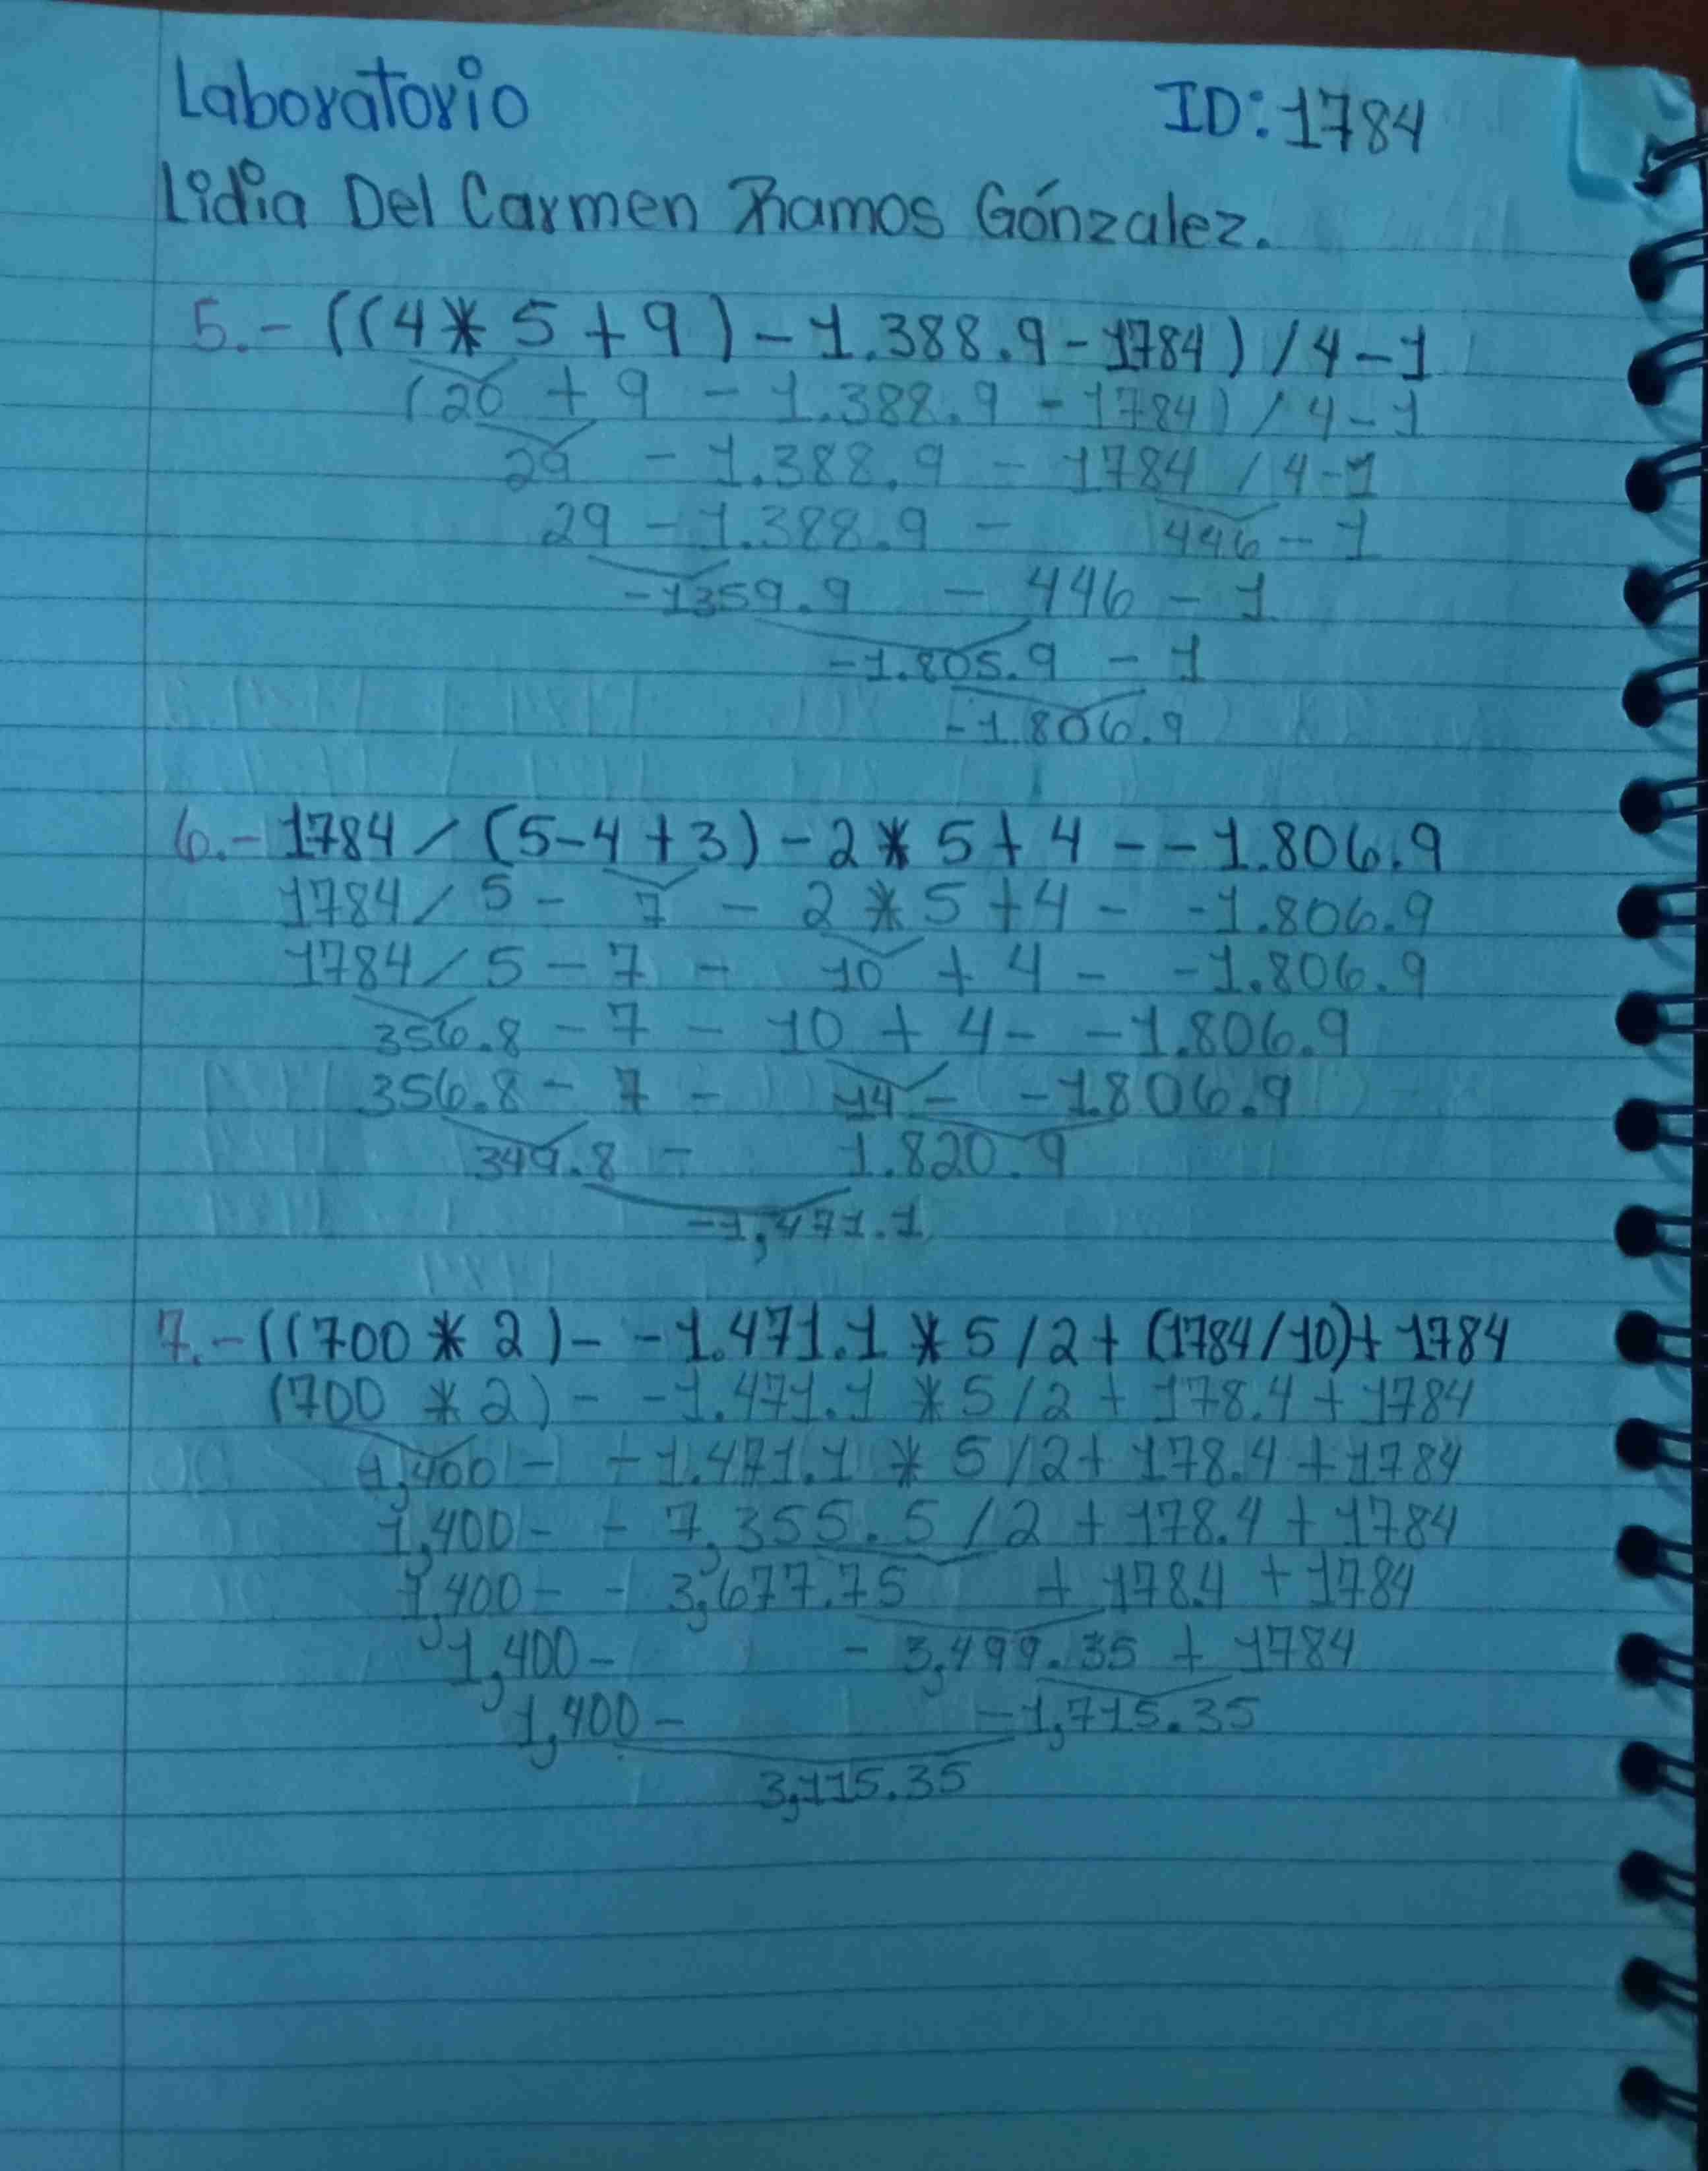 Laboratorio ID: 1784
Lidia Del Carmen Ramos Gónzalez.
5.- ((4 * 5 + 9) - 1.388.9 - 1784) / 4 - 1
(20 + 9 - 1.388.9 - 1784) / 4 - 1
29 - 1.388.9 - 1784 / 4 - 1
29 - 1.388.9 - 446 - 1
-1359.9 - 446 - 1
-1.805.9 - 1
-1.806.9
6.- 1784 / (5 - 4 + 3) - 2 * 5 + 4 - - 1.806.9
1784 / 5 - 7 - 2 * 5 + 4 - - 1.806.9
1784 / 5 - 7 - 10 + 4 - - 1.806.9
356.8 - 7 - 10 + 4 - - 1.806.9
356.8 - 7 - 14 - - 1.806.9
349.8 - 1.820.9
-1,471.1
7.- ((700 * 2) - - 1.471.1 * 5 / 2 + (1784 / 10) + 1784
(700 * 2) - - 1.471.1 * 5 / 2 + 178.4 + 1784
1,400 - - 1.471.1 * 5 / 2 + 178.4 + 1784
1,400 - - 7,355.5 / 2 + 178.4 + 1784
1,400 - - 3,677.75 + 178.4 + 1784
1,400 - - 3,499.35 + 1784
1,400 - - 1,715.35
3,115.35